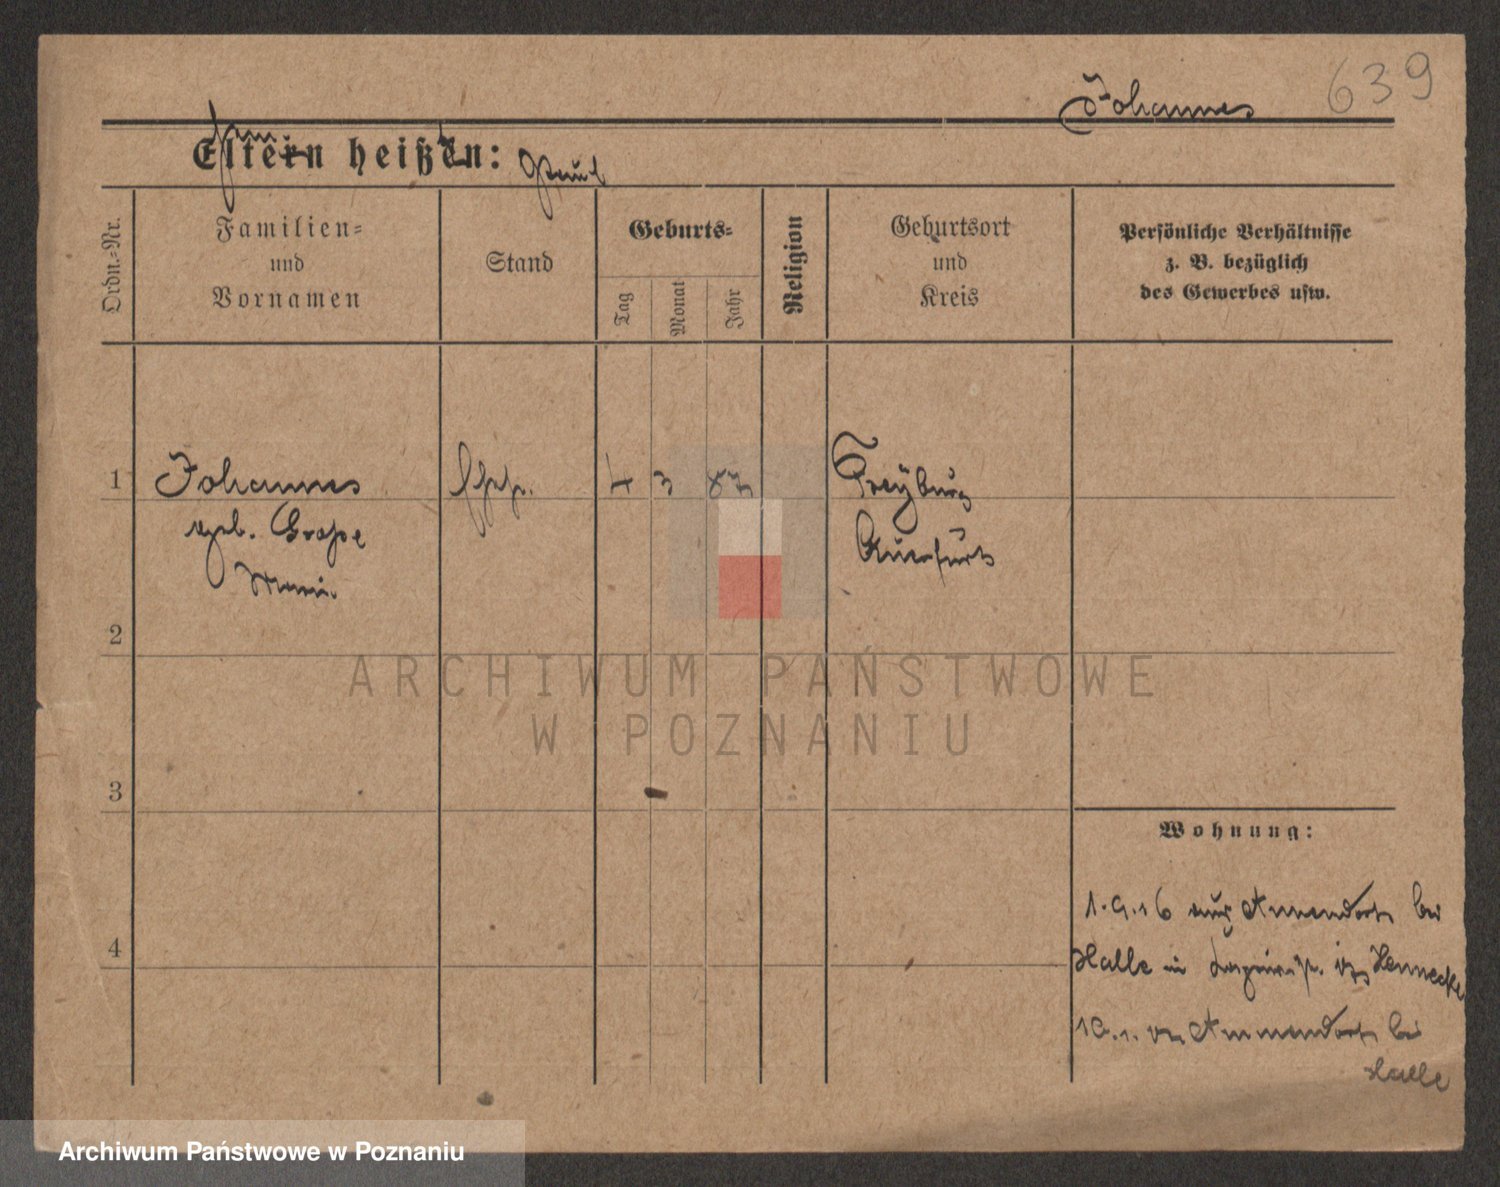 639
Johannes
Eltern heißen: Paul
Ordn.-Nr.
Familien-
und
Vornamen
Stand
Geburts-
Tag
Monat
Jahr
Religion
Geburtsort
und
Kreis
Persönliche Verhältnisse
z. B. bezüglich
des Gewerbes usw.
1 Johannes 4 3 87 Freyburg
geb. Grosse Querfurt
2
3
Wohnung:
4
1.9.16 aus Ammendorf bei
Halle in Hennecke
n. Ammendorf bei
Halle
ARCHIWUM PAŃSTWOWE
W POZNANIU
Archiwum Państwowe w Poznaniu